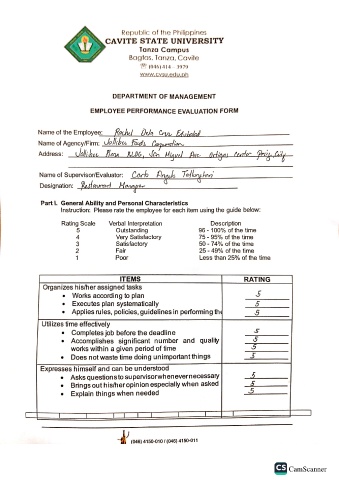 Republic of the Philippines
CAVITE STATE UNIVERSITY
Tanza Campus
Bagtas, Tanza, Cavite
☎ (046) 414 - 3979
www.cvsu.edu.ph
DEPARTMENT OF MANAGEMENT
EMPLOYEE PERFORMANCE EVALUATION FORM
Name of the Employee: Rachel Dela Cruz
Name of Agency/Firm: Jollibee Foods Corporation
Address: Jollibee Plaza BLDG, San Miguel Ave. Ortigas Center Pasig City
Name of Supervisor/Evaluator: Carlo Angelo
Designation: Restaurant Manager
Part I. General Ability and Personal Characteristics
Instruction: Please rate the employee for each item using the guide below:
Rating Scale Verbal Interpretation Description
5 Outstanding 96 - 100% of the time
4 Very Satisfactory 75 - 95% of the time
3 Satisfactory 50 - 74% of the time
2 Fair 25 - 49% of the time
1 Poor Less than 25% of the time
ITEMS RATING
Organizes his/her assigned tasks
• Works according to plan 5
• Executes plan systematically 5
• Applies rules, policies, guidelines in performing the 5
Utilizes time effectively
• Completes job before the deadline 5
• Accomplishes significant number and quality 5
works within a given period of time 5
• Does not waste time doing unimportant things 5
Expresses himself and can be understood
• Asks questions to supervisor whenever necessary 5
• Brings out his/her opinion especially when asked 5
• Explain things when needed 5
(046) 4150-010 / (046) 4150-011
CS CamScanner